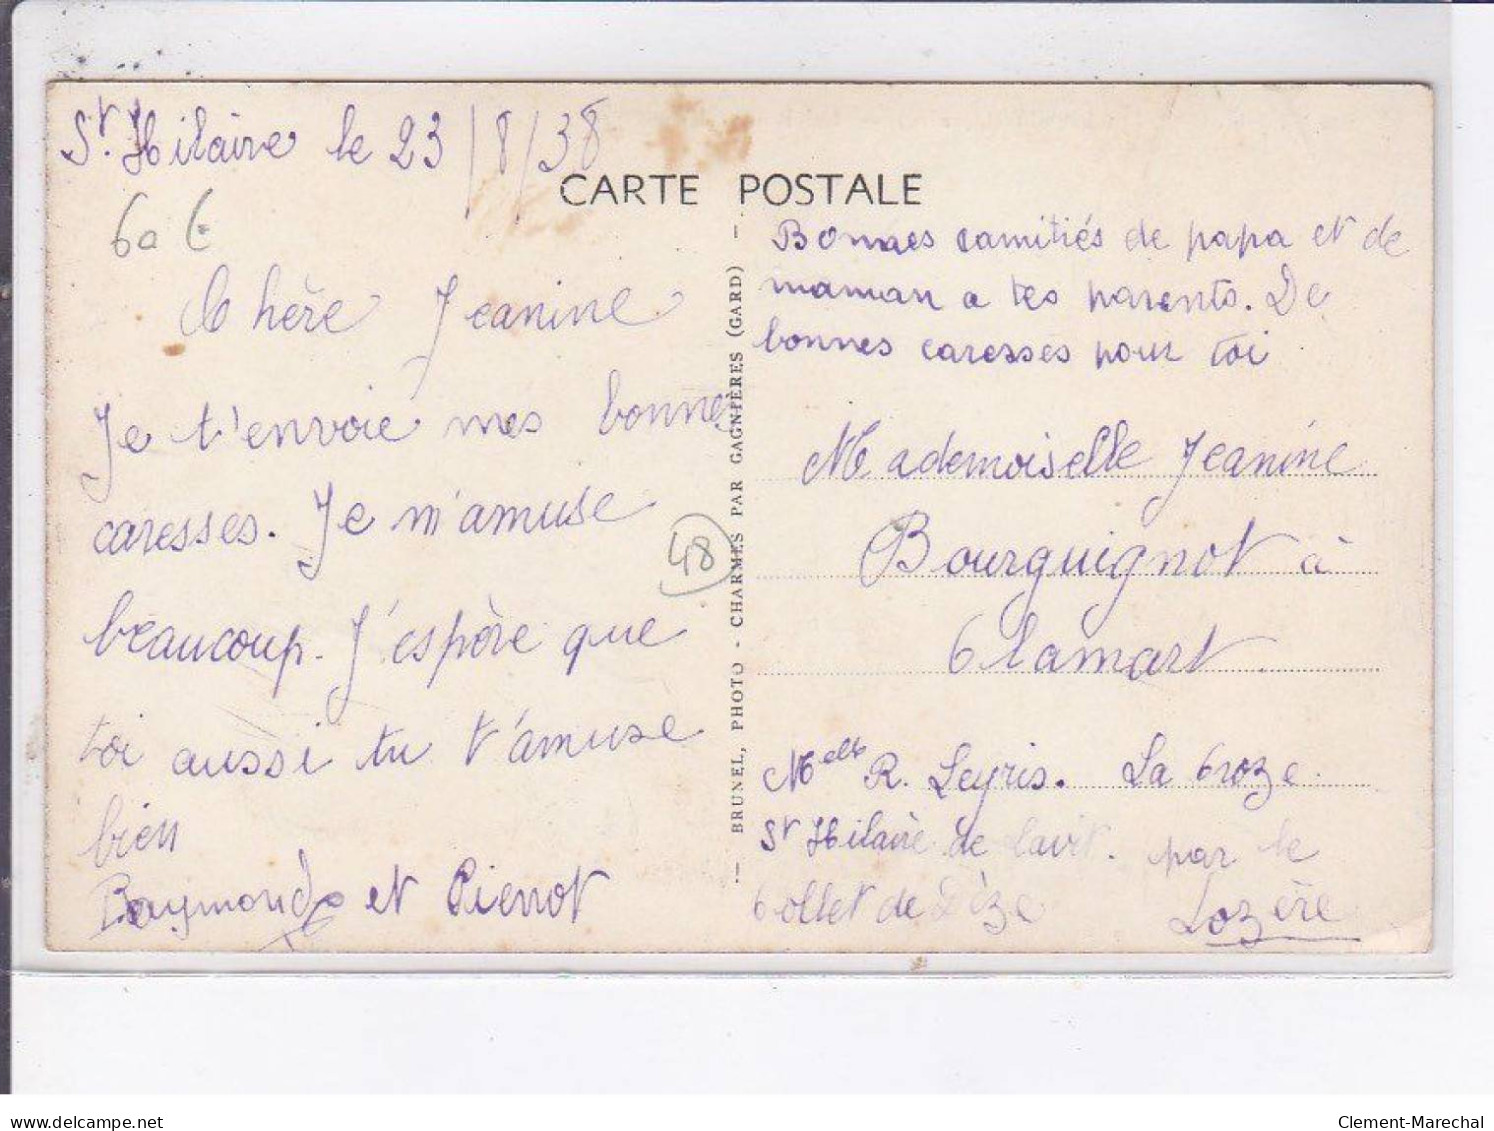 St. Hilaire le 23/8/38
60 €
CARTE POSTALE
Chère Jeanine
Je t'envoie mes bonnes
caresses. Je m'amuse
beaucoup. J'espère que
toi aussi tu t'amuse
bien
Raymonde et Pierrot
48
BRUNEL, PHOTO - CHARMES PAR GAGNIÈRES (GARD)
Bonnes amitiés de papa et de
maman a tes parents. De
bonnes caresses pour toi
Mademoiselle Jeanine
Bourguignot à
Clamart
Melle R. Leyris. La Croze
St Hilaire de Lavit. par le
Collet de Dèze Lozère
delcampe.net
Clement-Marechal